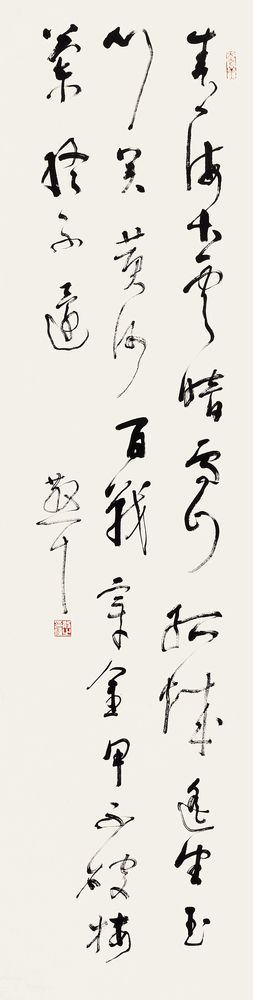 青海長雲暗雪山孤城遙望玉
門關黄沙百戰穿金甲不破樓
蘭終不還